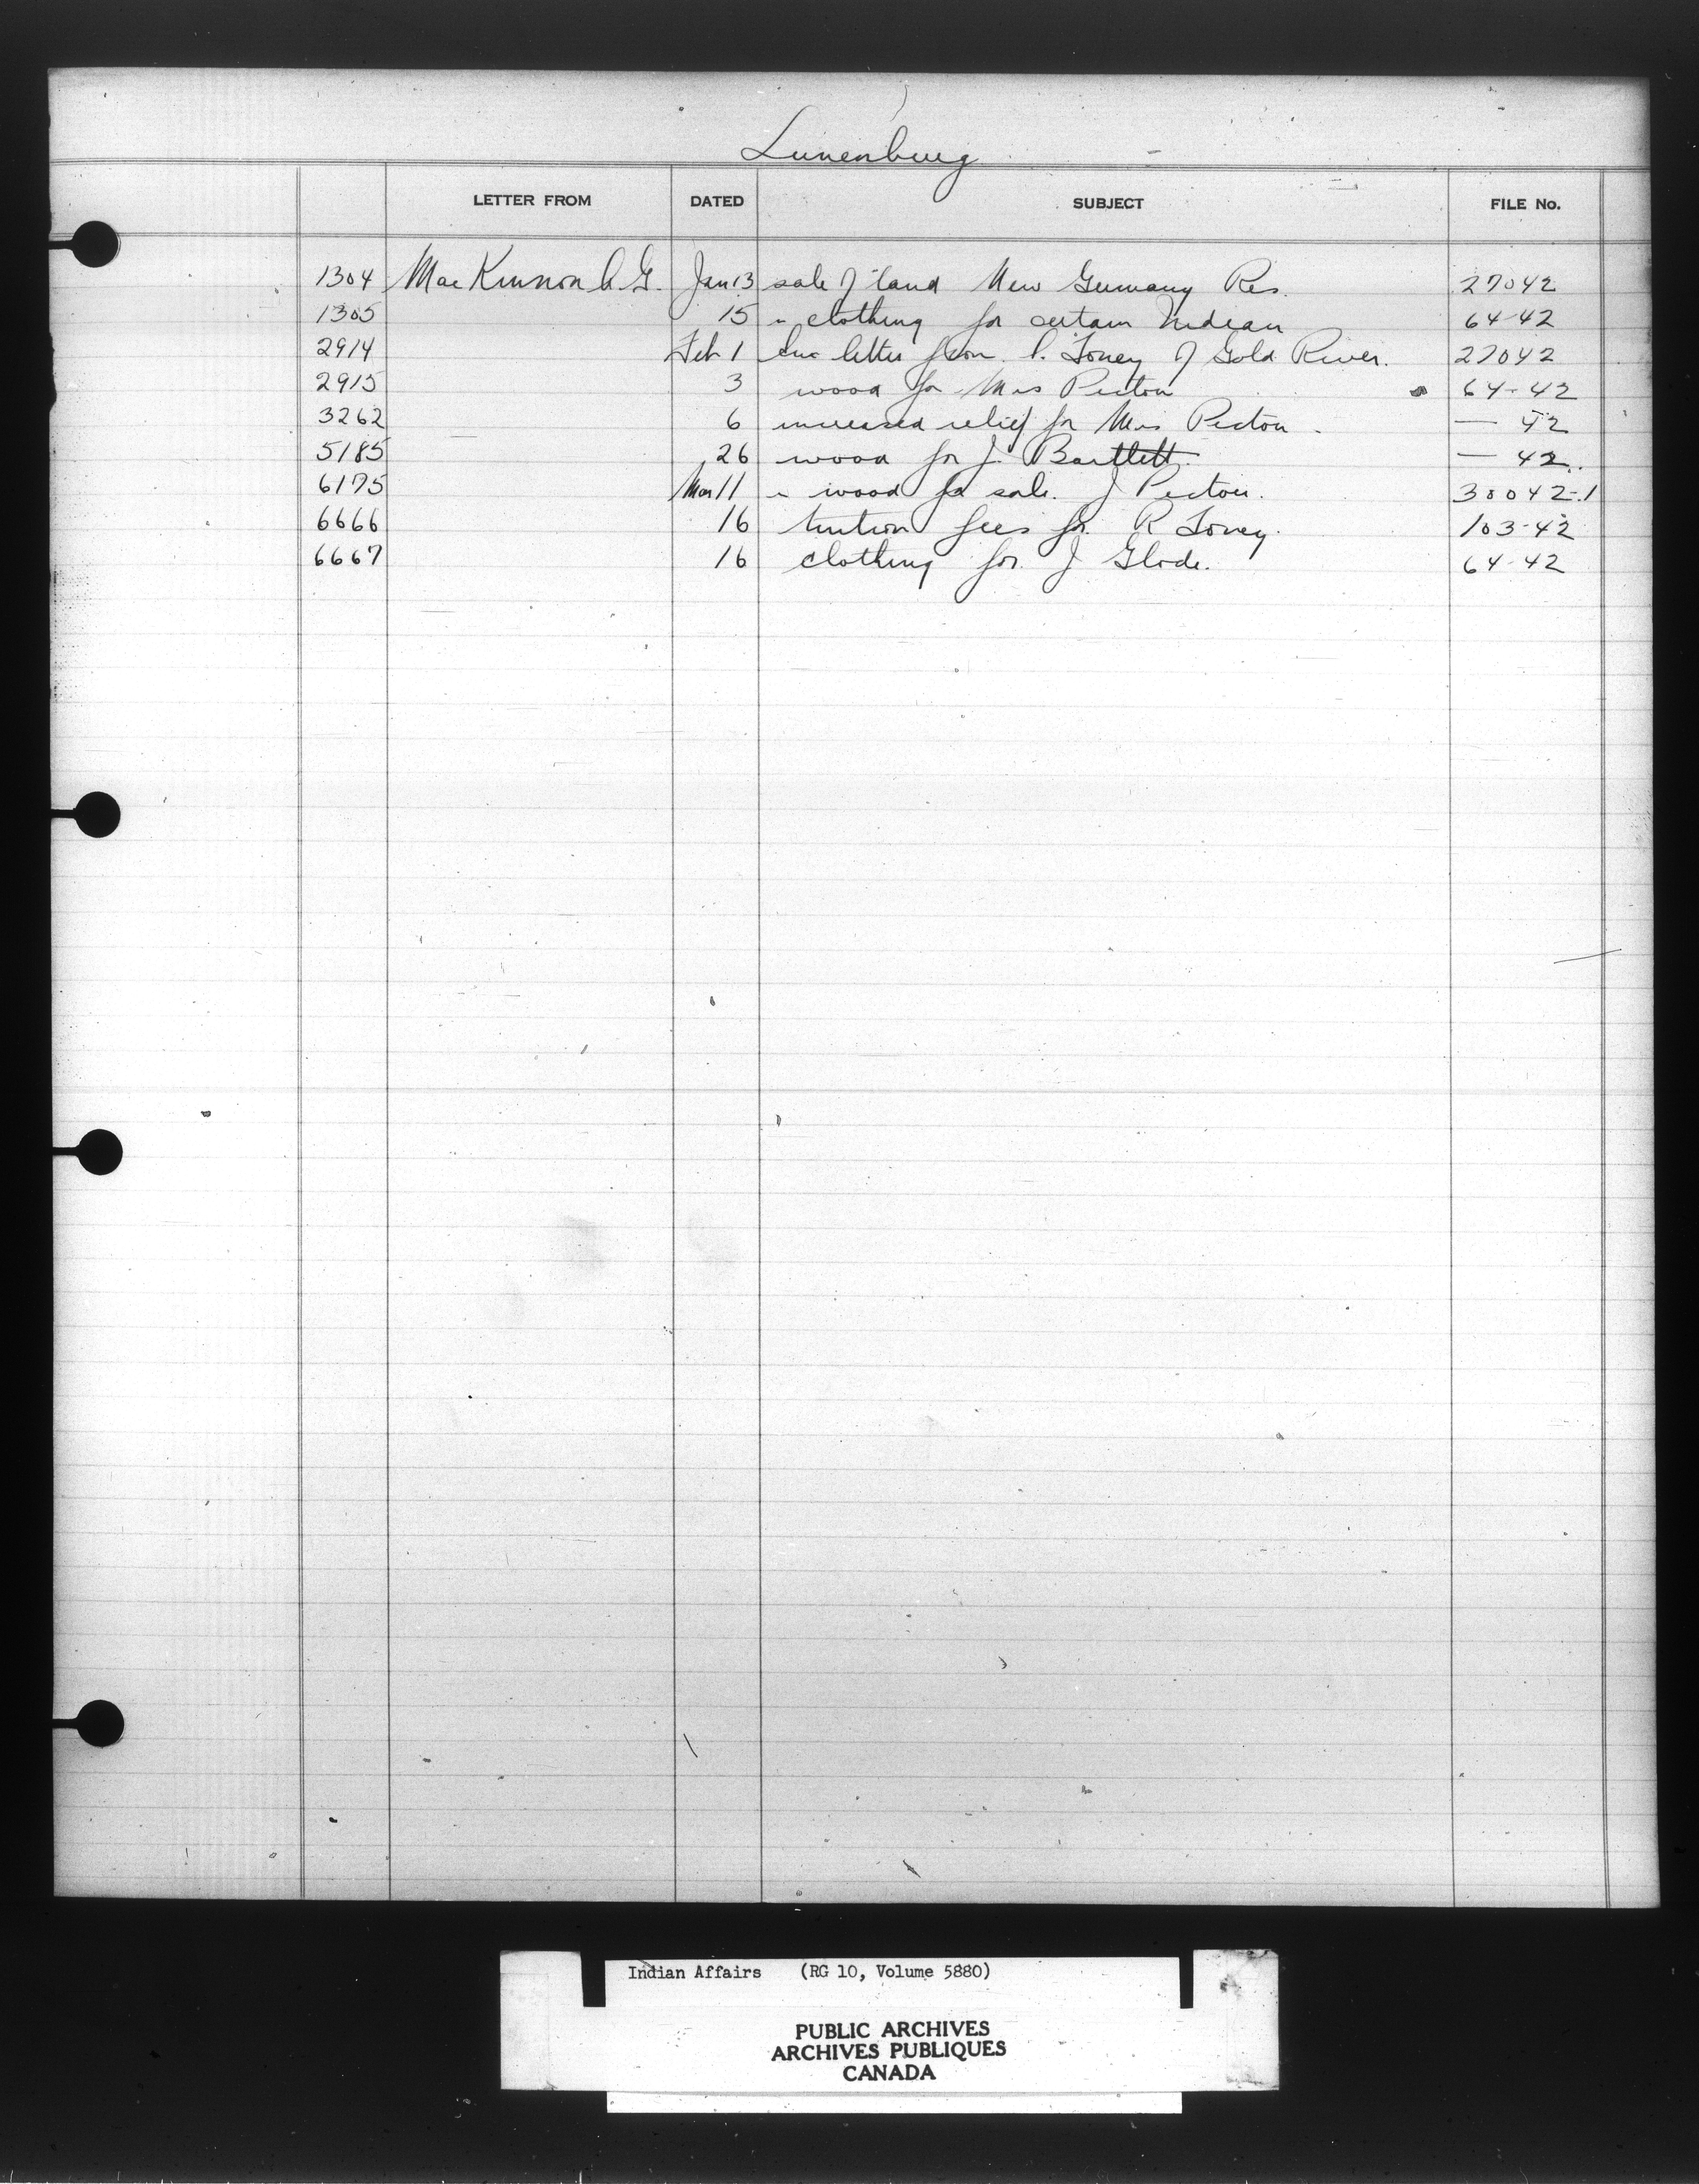 Lunenburg
LETTER FROM DATED SUBJECT FILE No.
1304 MacKinnon C.G. Jan 13 sale of land New Germany Res. 27042
1305 15 " clothing for certain Indian 64-42
2914 Feb 1 Enc letter from P. Toney of Gold River. 27042
2915 3 wood for Mrs Pictou 64-42
3262 6 increased relief for Mrs Pictou. — 42
5185 26 wood for J. Bartlett. — 42.
6175 Mar 11 " wood for sale. J Pictou. 30042-1
6666 16 tuition fees for R Toney. 103-42
6667 16 clothing for J Glode. 64-42
Indian Affairs (RG 10, Volume 5880)
PUBLIC ARCHIVES
ARCHIVES PUBLIQUES
CANADA